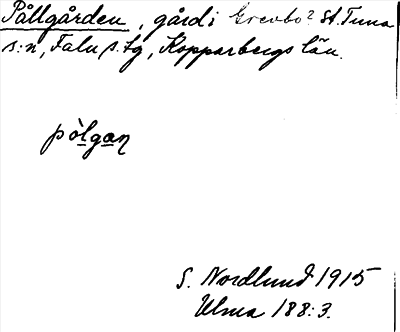 Pållgården, gård i Grevbo? St. Tuna
s:n, Falu s. tg, Kopparbergs län.
pòlgan
S. Nordlund 1915
Ulma 188:3.